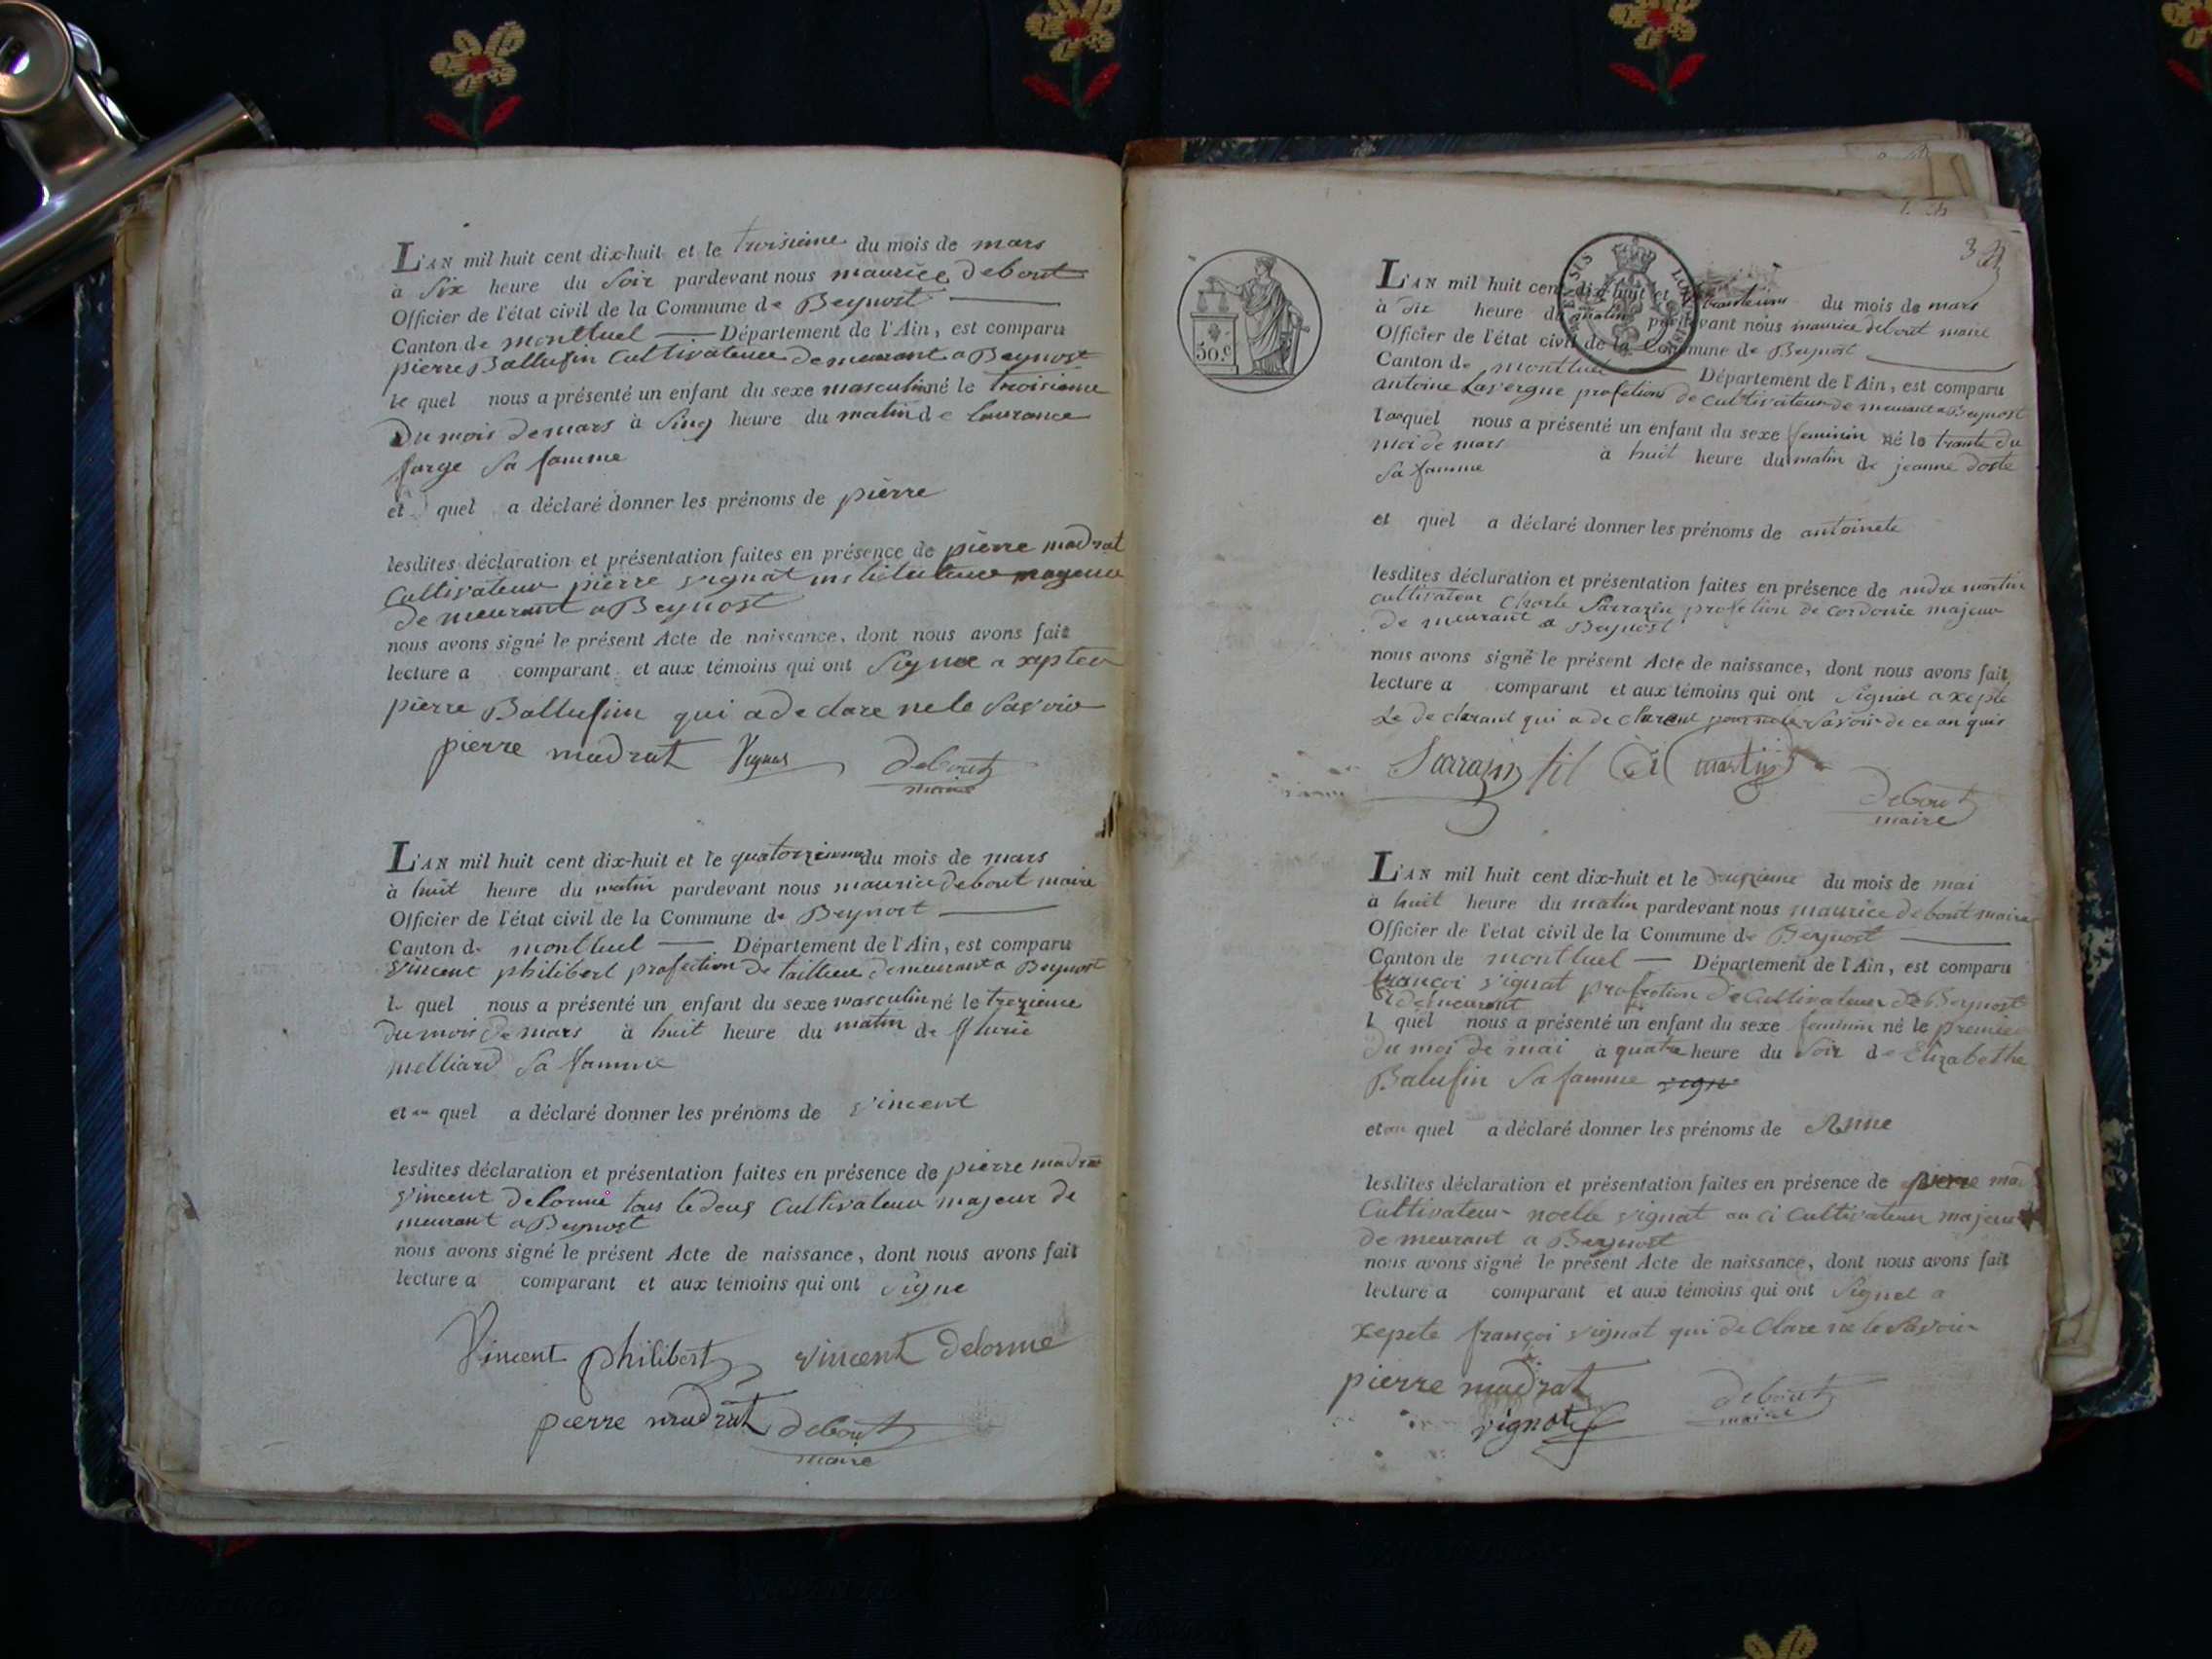 L'AN mil huit cent dix-huit et le troisieme du mois de mars
à Six heure du Soir pardevant nous maurice debout
Officier de l'état civil de la Commune de Beynost
Canton de montluel Département de l'Ain, est comparu
pierre Ballufin Cultivateur demeurant a Beynost
le quel nous a présenté un enfant du sexe masculin né le troisieme
Du mois de mars à Sinq heure du matin de Laurance
farge Sa famme
et quel a déclaré donner les prénoms de pierre
lesdites déclaration et présentation faites en présence de pierre madrat
Cultivateur pierre vignat instituteur mageur
de meurant a Beynost
nous avons signé le présent Acte de naissance, dont nous avons fait
lecture a comparant et aux témoins qui ont Signe a xepter
pierre Ballufin qui a declare ne le Savoir
pierre madrat Vignat debout
maire
L'AN mil huit cent dix-huit et le quatorzieme du mois de mars
à huit heure du matin pardevant nous maurice debout maire
Officier de l'état civil de la Commune de Beynost
Canton de montluel Département de l'Ain, est comparu
Vincent philibert profection de tailleur demeurant a Beynost
l quel nous a présenté un enfant du sexe masculin né le trezieme
du mois de mars à huit heure du matin de flurie
melliard Sa famme
et au quel a déclaré donner les prénoms de vincent
lesdites déclaration et présentation faites en présence de pierre madrat
vincent delorme tous le deus Cultivateur majeur de
meurant a Beynost
nous avons signé le présent Acte de naissance, dont nous avons fait
lecture a comparant et aux témoins qui ont Signe
Vincent philibert vincent delorme
pierre madrat debout
maire
50.c
L'AN mil huit cent dix-huit et le du mois de mars
à dix heure du matin pardevant nous maurice debout maire
Officier de l'état civil de la Commune de Beynost
Canton de montluel Département de l'Ain, est comparu
antoine Lavergne profetion de cultivateur de meurant a Beynost
lequel nous a présenté un enfant du sexe feminin né le trante du
moi de mars à huit heure du matin de jeanne doste
Sa famme
et quel a déclaré donner les prénoms de antoinete
lesdites déclaration et présentation faites en présence de andre martin
cultivateur Charle Sarrazin profetion de cordonie majeur
de meurant a Beynost
nous avons signé le présent Acte de naissance, dont nous avons fait
lecture a comparant et aux témoins qui ont Signet axepté
Le declarant qui a declarent pour ne le Savoir de ce an quis
Sarrazin fil martin
debout
maire
L'AN mil huit cent dix-huit et le deuzieme du mois de mai
à huit heure du matin pardevant nous maurice debout maire
Officier de l'etat civil de la Commune de Beynost
Canton de montluel Département de l'Ain, est comparu
françoi vignat profection de Cultivateur de Beynost
demeurant
l quel nous a présenté un enfant du sexe feminin né le premier
du moi de mai à quatre heure du Soir de Elizabethe
Balufin Sa famme
et au quel a déclaré donner les prénoms de Anne
lesdites déclaration et présentation faites en présence de pierre mad
Cultivateur noelle vignat au ci Cultivateur majeur
de meurant a Beynost
nous avons signé le présent Acte de naissance, dont nous avons fait
lecture a comparant et aux témoins qui ont Signet a
xepete françoi vignat qui de Clare ne le Savoir
pierre madrat debout
vignat maire